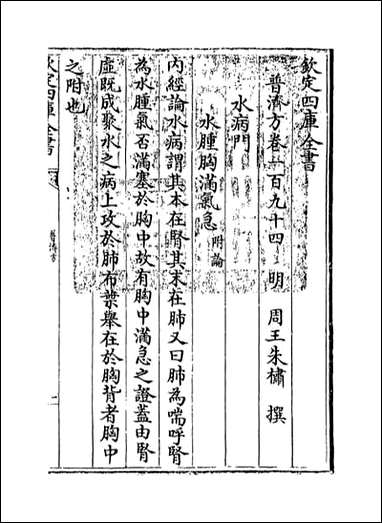 欽定四庫全書
普濟方卷一百九十四 明 周王朱橚 撰
水病門
水腫胸滿氣急附論
內經論水病謂其本在腎其末在肺又曰肺為喘呼腎
為水腫氣否滿塞於胸中故有胸中滿急之證蓋由腎
虛既成聚水之病上攻於肺布葉舉在於胸背者胸中
之附也
欽定四庫全書
普濟方
一